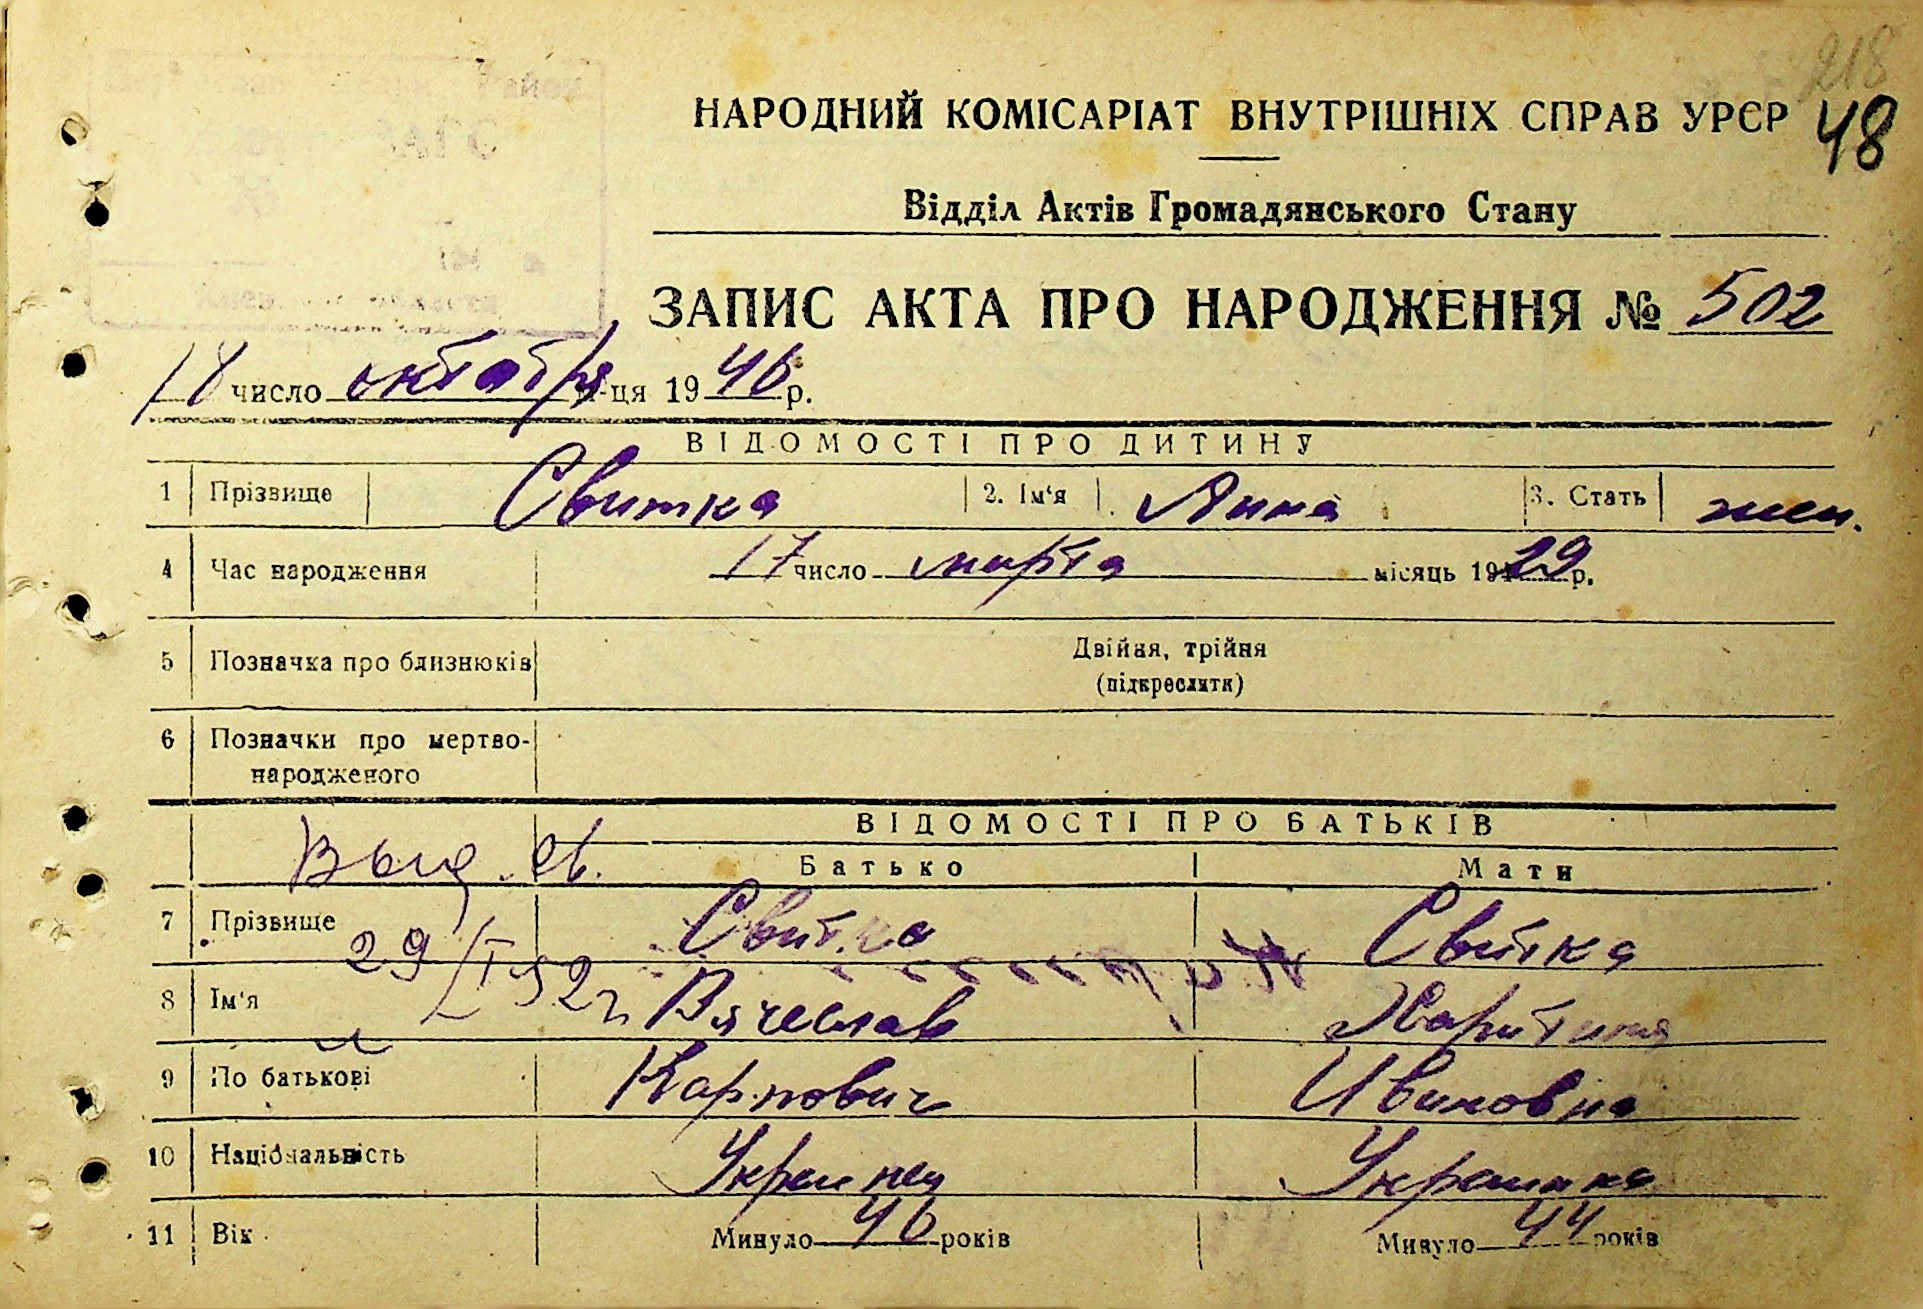 218
НАРОДНИЙ КОМІСАРІАТ ВНУТРІШНІХ СПРАВ УРЄР 48
Відділ Актів Громадянського Стану
ЗАПИС АКТА ПРО НАРОДЖЕННЯ № 502
18 число октября м-ця 1946 р.
ВІДОМОСТІ ПРО ДИТИНУ
1 Прізвище Свитка 2. Ім'я Анна 3. Стать жен.
4 Час народження 17 число марта місяць 1929 р.
5 Позначка про близнюків Двійня, трійня
(підкреслити)
6 Позначки про мертво-
народженого
ВІДОМОСТІ ПРО БАТЬКІВ
Выд. св. Батько Мати
7 Прізвище Свитка Свитка
29/I 52г
8 Ім'я Вячеслав Харитина
9 По батькові Карпович Ивановна
10 Національність Украинец Украинка
11 Вік Минуло 46 років Минуло 44 років